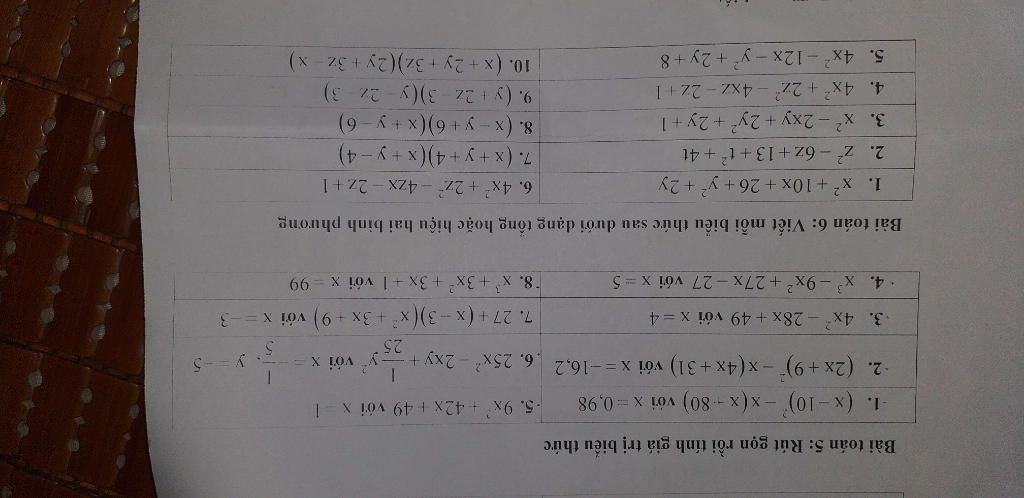 Bài toán 5: Rút gọn rồi tính giá trị biểu thức
1. (x − 10)² − x(x + 80) với x = 0,98
5. 9x² + 42x + 49 với x = 1
2. (2x + 9)² − x(4x + 31) với x = −16,2
6. 25x² − 2xy + 1/25 y² với x = −1/5, y = −5
3. 4x² − 28x + 49 với x = 4
7. 27 + (x − 3)(x² + 3x + 9) với x = −3
4. x³ − 9x² + 27x − 27 với x = 5
8. x³ + 3x² + 3x + 1 với x = 99
Bài toán 6: Viết mỗi biểu thức sau dưới dạng tổng hoặc hiệu hai bình phương
1. x² + 10x + 26 + y² + 2y
6. 4x² + 2z² − 4zx − 2z + 1
2. z² − 6z + 13 + t² + 4t
7. (x + y + 4)(x + y − 4)
3. x² − 2xy + 2y² + 2y + 1
8. (x − y + 6)(x + y − 6)
4. 4x² + 2z² − 4xz − 2z + 1
9. (y + 2z − 3)(y − 2z − 3)
5. 4x² − 12x − y² + 2y + 8
10. (x + 2y + 3z)(2y + 3z − x)